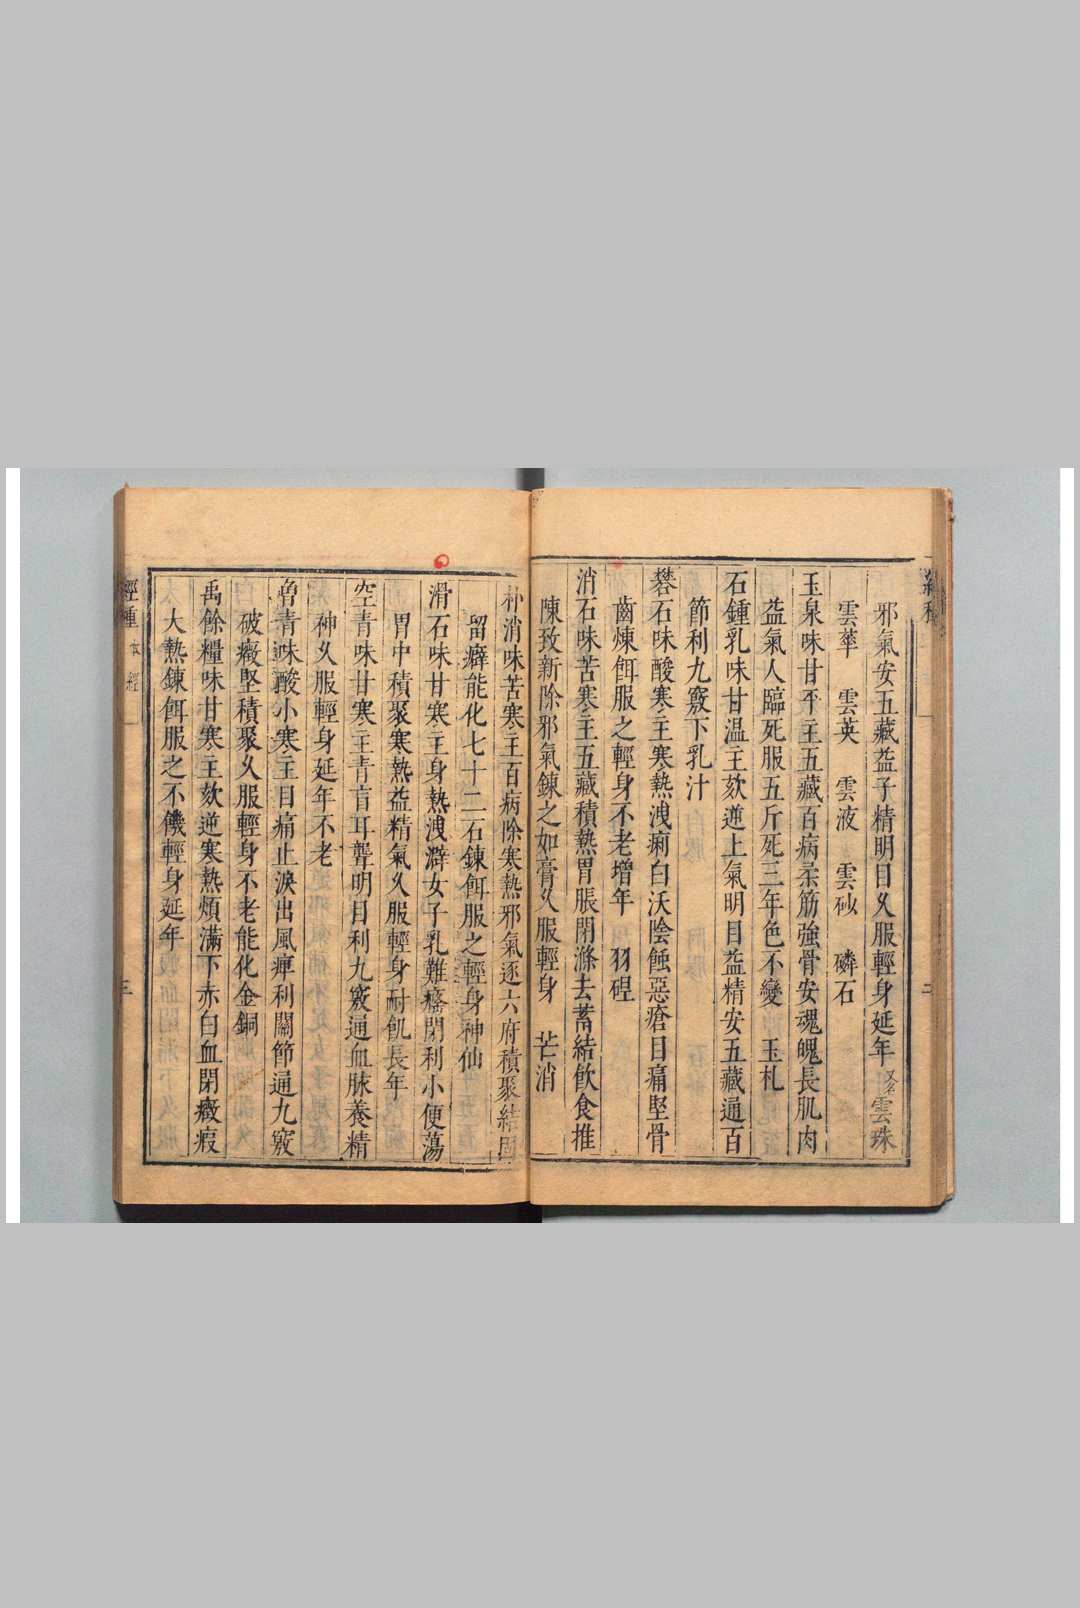 邪氣安五藏益子精明目久服輕身延年 又名雲珠
雲華 雲英 雲液 雲砂 磷石
玉泉味甘平主五藏百病柔筋強骨安魂魄長肌肉
益氣人臨死服五斤死三年色不變 玉札
石鍾乳味甘温主欬逆上氣明目益精安五藏通百
節利九竅下乳汁
礬石味酸寒主寒熱洩痢白沃陰蝕惡瘡目痛堅骨
齒煉餌服之輕身不老増年 羽碮
消石味苦寒主五藏積熱胃脹閉滌去蓄結飲食推
陳致新除邪氣錬之如膏久服輕身 芒消
朴消味苦寒主百病除寒熱邪氣逐六府積聚結固
留癖能化七十二石錬餌服之輕身神仙
滑石味甘寒主身熱洩澼女子乳難癃閉利小便蕩
胃中積聚寒熱益精氣久服輕身耐飢長年
空青味甘寒主青盲耳聾明目利九竅通血脉養精
神久服輕身延年不老
曾青味酸小寒主目痛止淚出風痺利關節通九竅
破癥堅積聚久服輕身不老能化金銅
禹餘糧味甘寒主欬逆寒熱煩滿下赤白血閉癥瘕
大熱錬餌服之不饑輕身延年
經種 本經
三